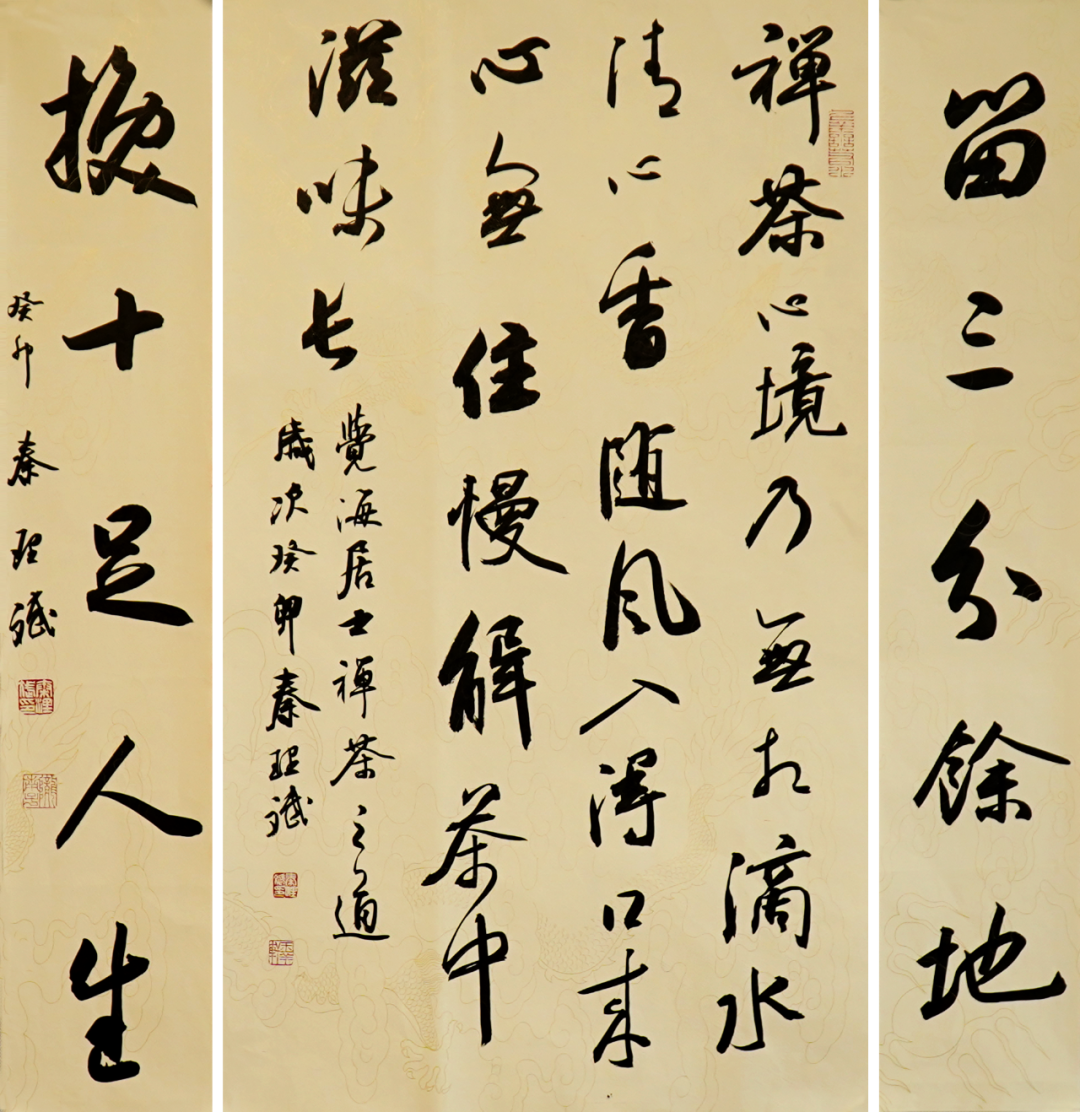 留三分餘地
禅茶心境乃無相滴水
清心香随风入得口来
心無住慢解茶中
滋味长
覺海居士禅茶之道
歲次癸卯秦
换十足人生
癸卯 秦